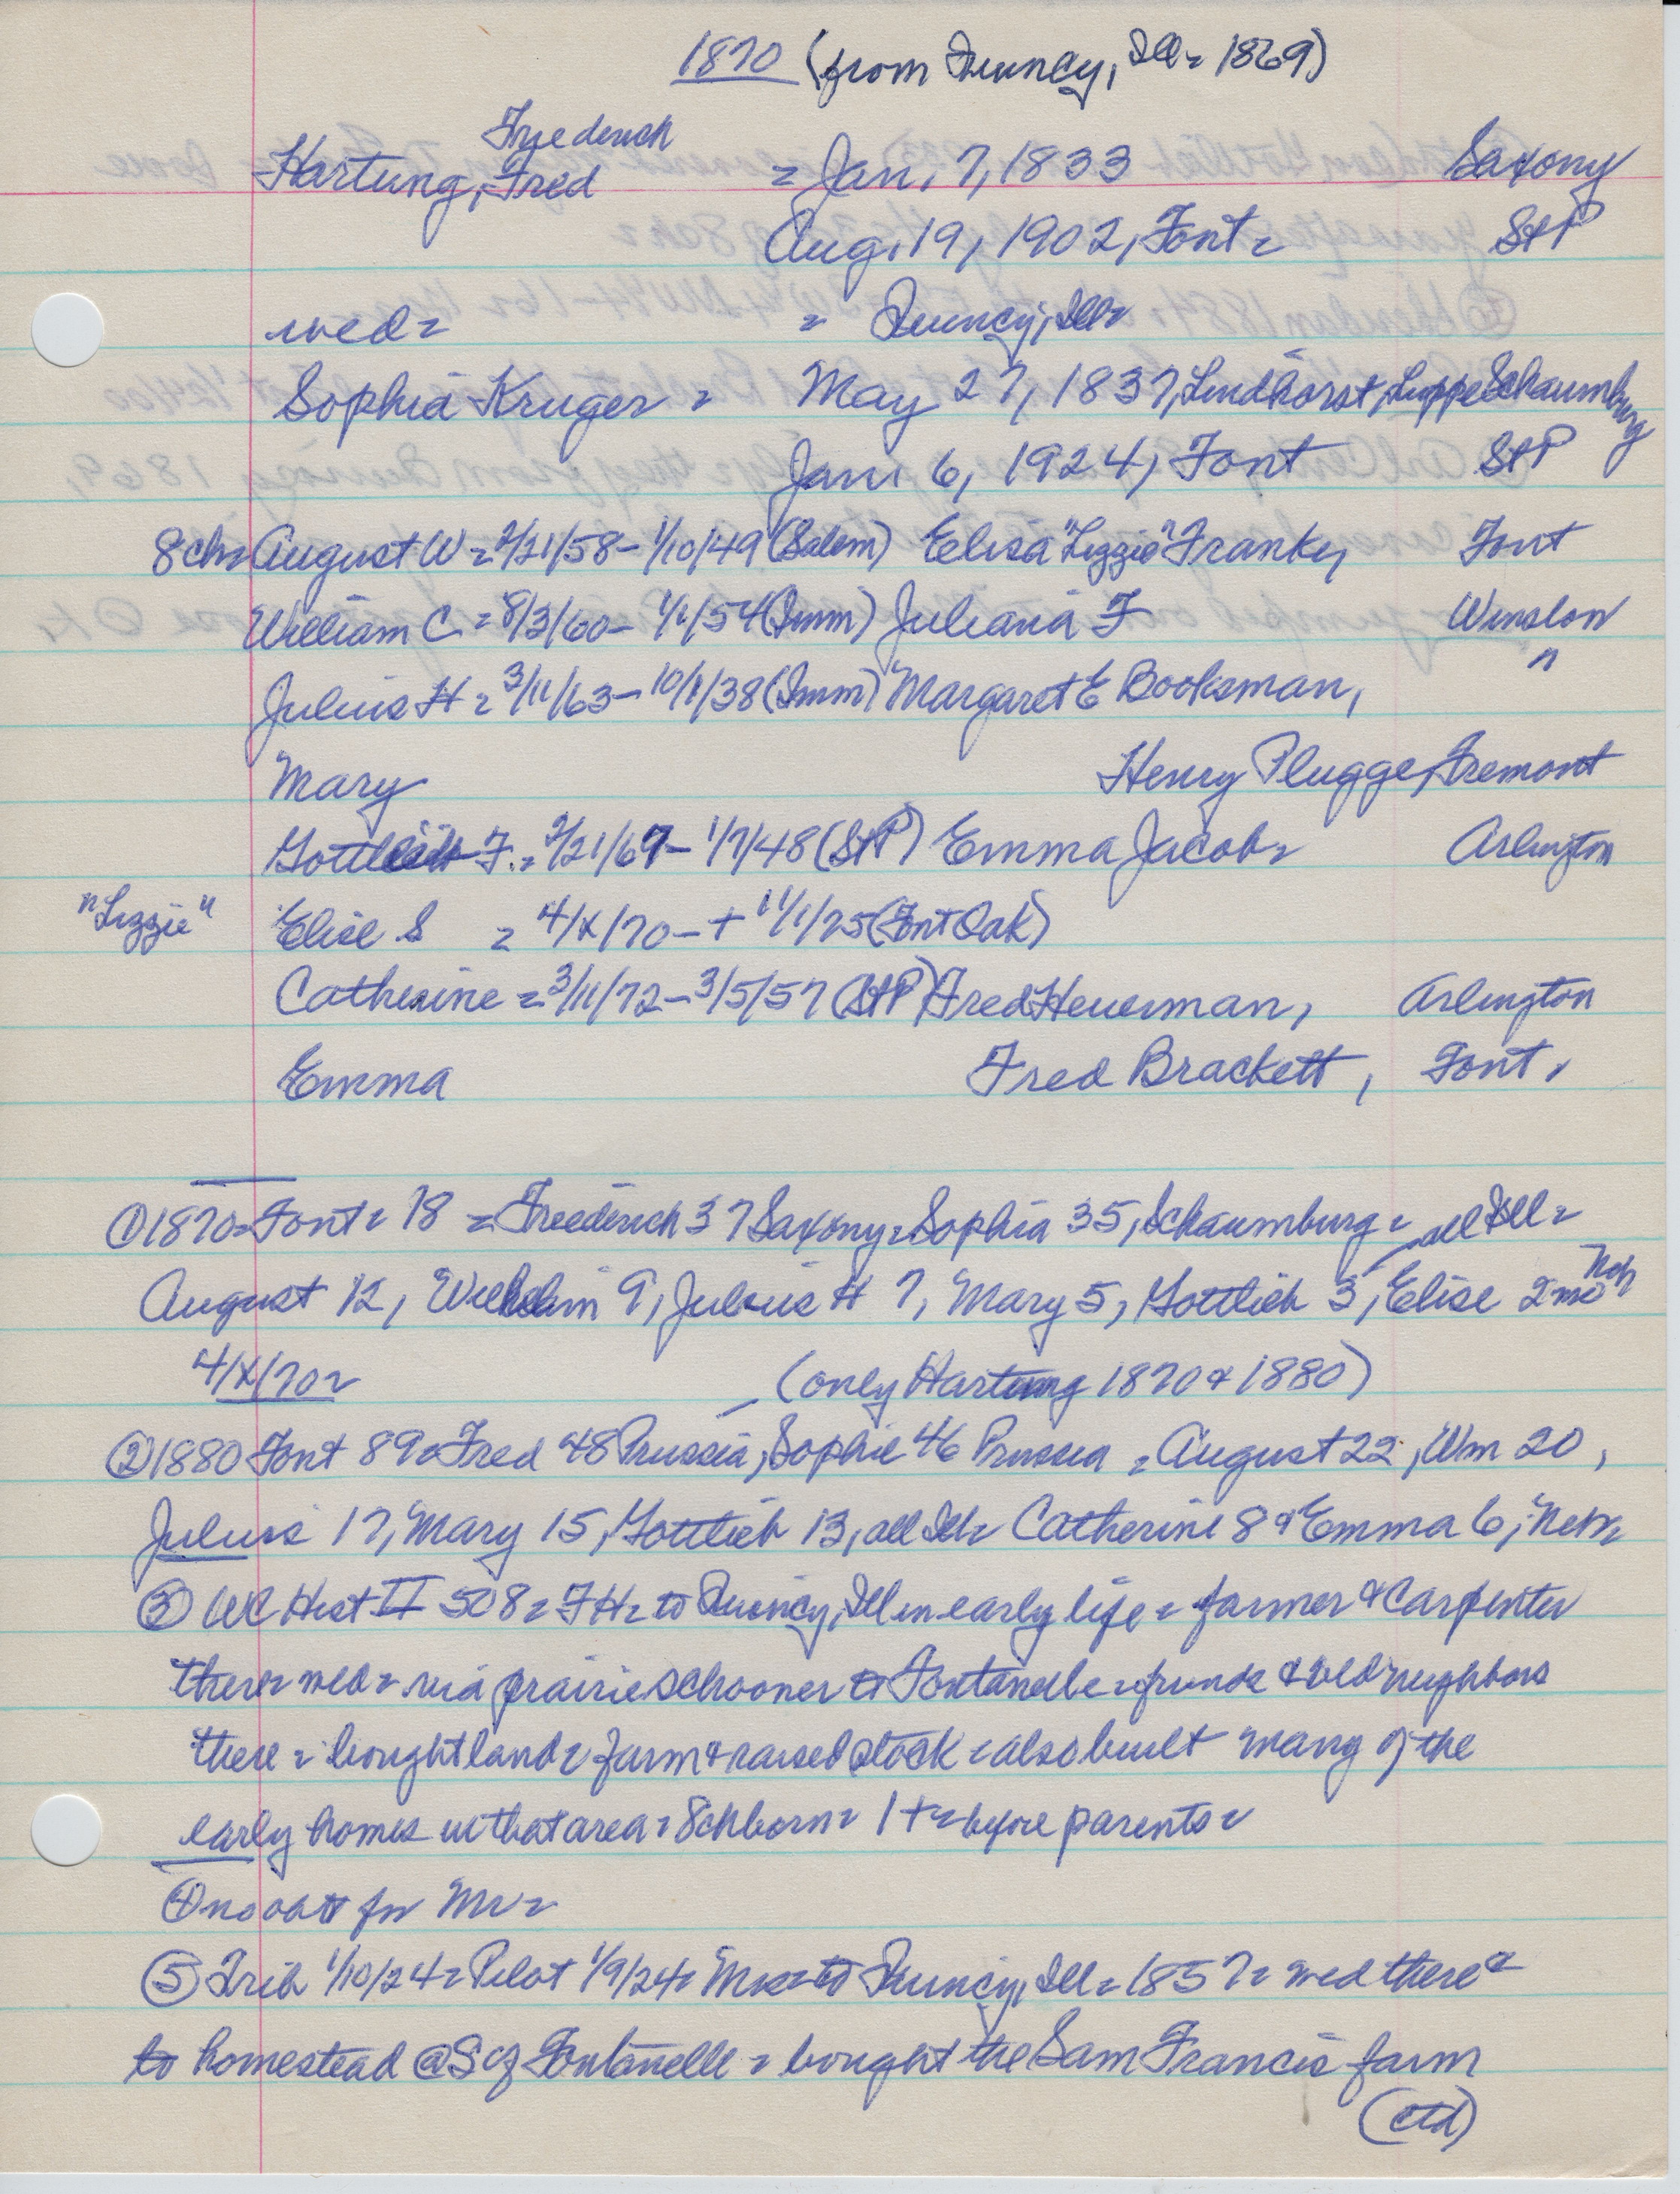 1870 (from Quincy, Ill = 1869)
Fryederich
Hartung, Fred = Jan. 7, 1833 Saxony
Aug. 19, 1902, Font = StP
wed = = Quincy, Ill =
Sophia Kruger = May 27, 1837, Lindhorst, Lippe Schaumburg
Jan. 6, 1924, Font StP
8ch= August W = 2/21/58 - 1/10/49 (Salem) Elisa "Lizzie" Franke, Font
William C = 8/3/60 - 1/1/54 (Imm) Juliana F Winslow
Julius H = 3/11/63 - 10/1/38 (Imm) Margaret E Booksman, "
Mary Henry Plugge, Fremont
Gottlieb F. = 2/21/67 - 1/7/48 (StP) Emma Jacob = Arlington
"Lizzie" Elise S = 4/X/70 - + 11/1/25 (Font Oak)
Catherine = 3/11/72 - 3/5/57 (StP) Fred Heuerman, Arlington
Emma Fred Brackett, Font.
① 1870 = Font = 18 = Freederich 37 Saxony = Sophia 35, Schaumburg = all Ill =
August 12, Wilhelm 9, Julius H 7, Mary 5, Gottlieb 3, Elise 2 mo Neb
4/X/70 = (only Hartung 1870 & 1880)
② 1880 Font 89 = Fred 48 Prussia, Sophie 46 Prussia = August 22, Wm 20,
Julius 17, Mary 15, Gottlieb 13, all Ill = Catherine 8 & Emma 6, Neb =
③ WC Hist II 508 = FH = to Quincy, Ill in early life = farmer & carpenter
there = wed = via prairie schooner to Fontanelle = friends & old neighbors
there = bought land = farm & raised stock = also built many of the
early homes in that area = 8ch born = 1 + = before parents =
④ no obit for Mr =
⑤ Trib 1/10/24 = Pilot 1/9/24 = Mrs = to Quincy, Ill = 1857 = wed there &
to homestead @ S of Fontanelle = bought the Sam Francis farm
(ctd)